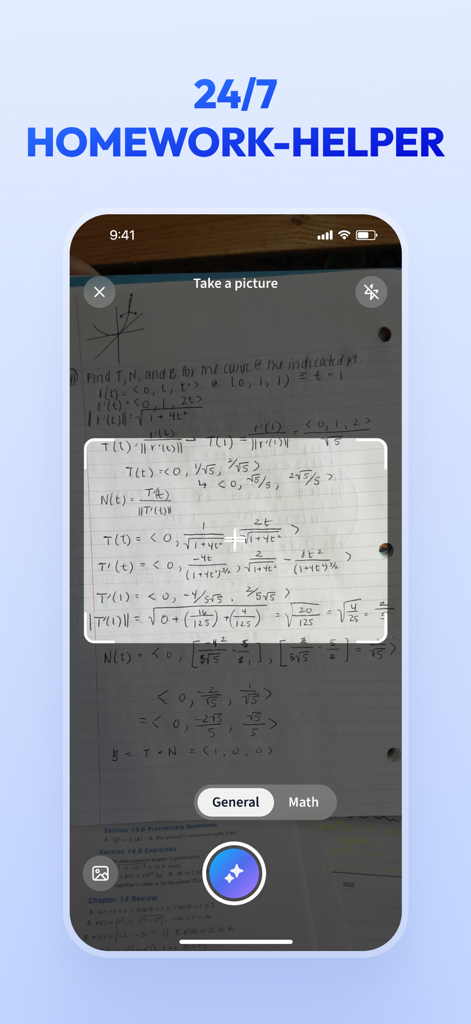 24/7
HOMEWORK-HELPER
9:41
Take a picture
Find T, N, and B for the curve @ the indicated pt.
r(t) = <0, t, t²> @ (0, 1, 1) ≡ t = 1
r'(t) = <0, 1, 2t>
||r'(t)|| = √(1+4t²)
T(t) = r'(t)/||r'(t)|| → T(1) = r'(1)/||r'(1)|| = <0, 1, 2>/√5
T(t) = <0, 1/√5, 2/√5>
↳ <0, √5/5, 2√5/5>
N(t) = T'(t)/||T'(t)||
T(t) = <0, 1/√(1+4t²), 2t/√(1+4t²)>
T'(t) = <0, -4t/(1+4t²)^(3/2), 2/√(1+4t²) - 8t²/(1+4t²)^(3/2)>
T'(1) = <0, -4/5√5, 2/5√5>
||T'(1)|| = √(0 + (16/125) + (4/125)) = √(20/125) = √(4/25) = 2/5
N(t) = <0,
<0, -2/√5, 1/√5>
= <0, -2√5/5, √5/5>
B = T × N = <1, 0, 0>
General
Math
Section 14.6 Preliminary Questions
Section 14.6 Exercises
Chapter 14 Review